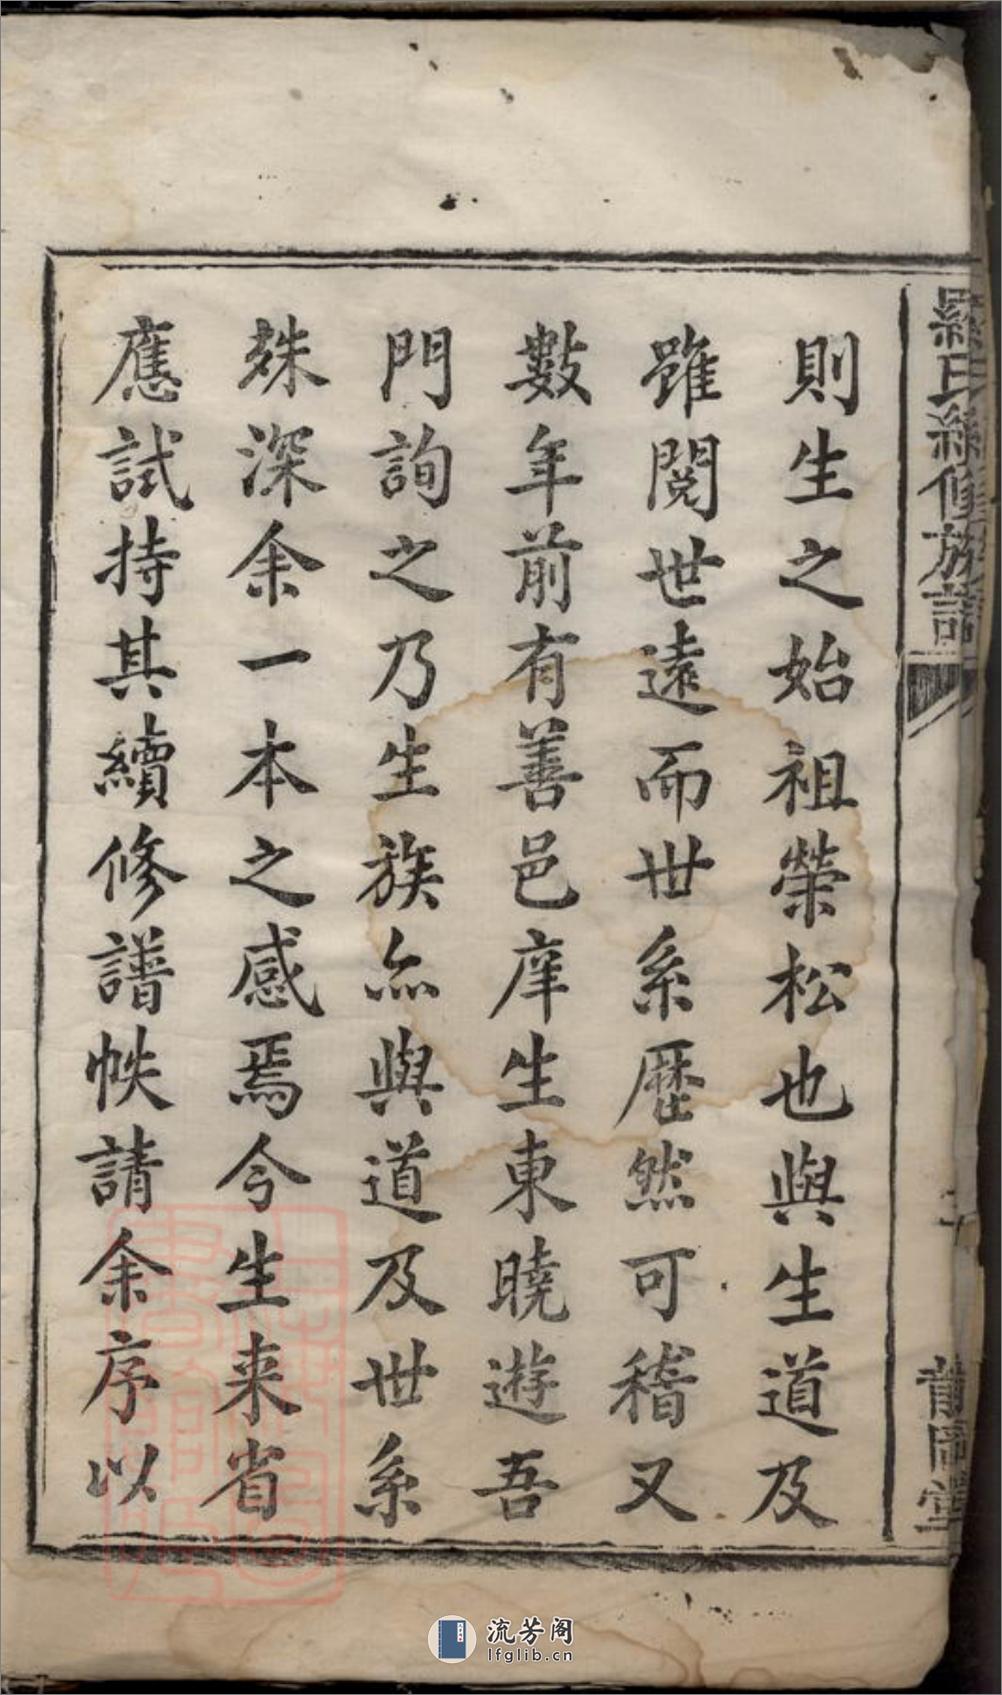 羅氏續修族譜
二
則生之始祖榮松也與生道及
雖閱世遠而世系歷然可稽又
數年前有善邑庠生東曉遊吾
門詢之乃生族亦與道及世系
殊深余一本之感焉今生来省
應試持其續修譜帙請余序以
流芳阁
lfglib.cn